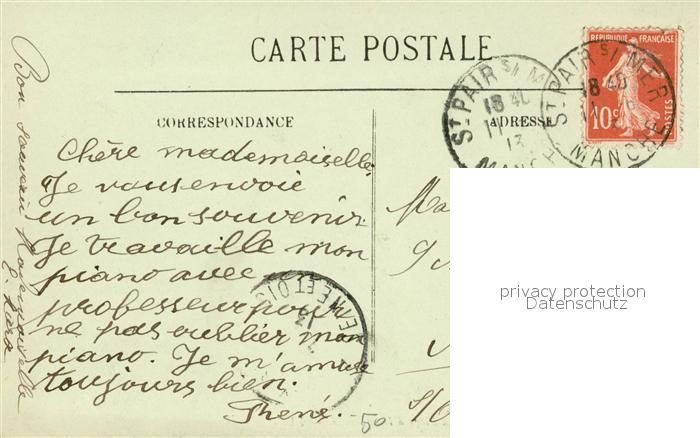 CARTE POSTALE
CORRESPONDANCE
ADRESSE
REPUBLIQUE FRANÇAISE
10c
POSTES
ST PAIR SI MER
18 40
13
MANCHE
ST PAIR SI M
18 40
11
13
MANC
Chère mademoiselle
Je vous envoie
un bon souvenir
Je travaille mon
piano avec un
professeur pour
ne pas oublier mon
piano. Je m'amuse
toujours bien.
Bon souvenir Mademoiselle
NE ET OIS
13
50
privacy protection
Datenschutz